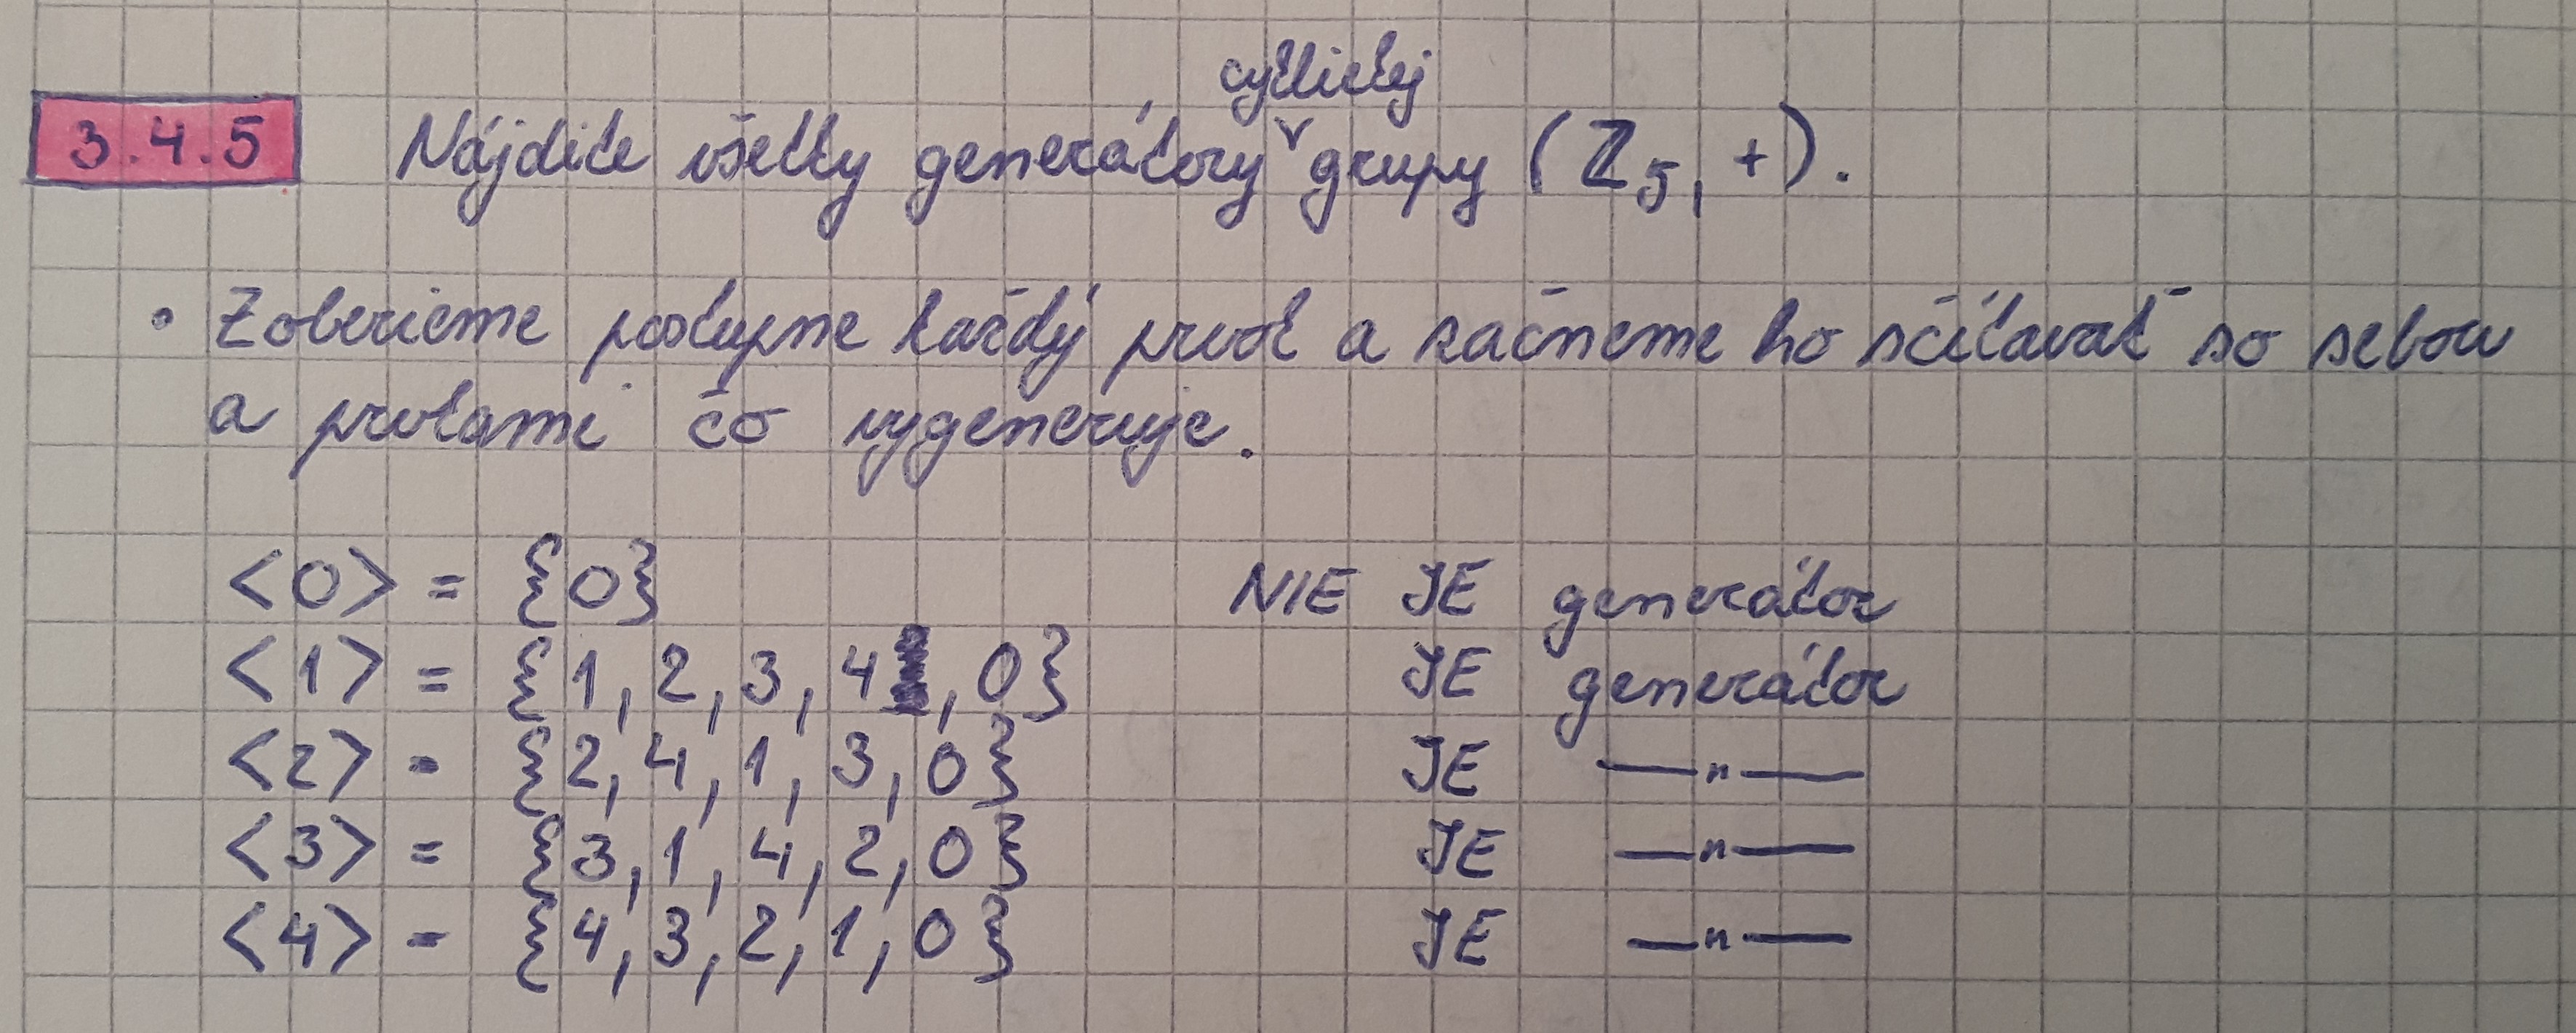 cyklickej
3.4.5 Nájdite všetky generátory ˅ grupy (ℤ₅, +).
• Zoberieme postupne každý prvok a začneme ho sčítavať so sebou
a prvkami čo vygeneruje.
<0> = {0} NIE JE generátor
<1> = {1, 2, 3, 4, 0} JE generátor
<2> = {2, 4, 1, 3, 0} JE —"—
<3> = {3, 1, 4, 2, 0} JE —"—
<4> = {4, 3, 2, 1, 0} JE —"—